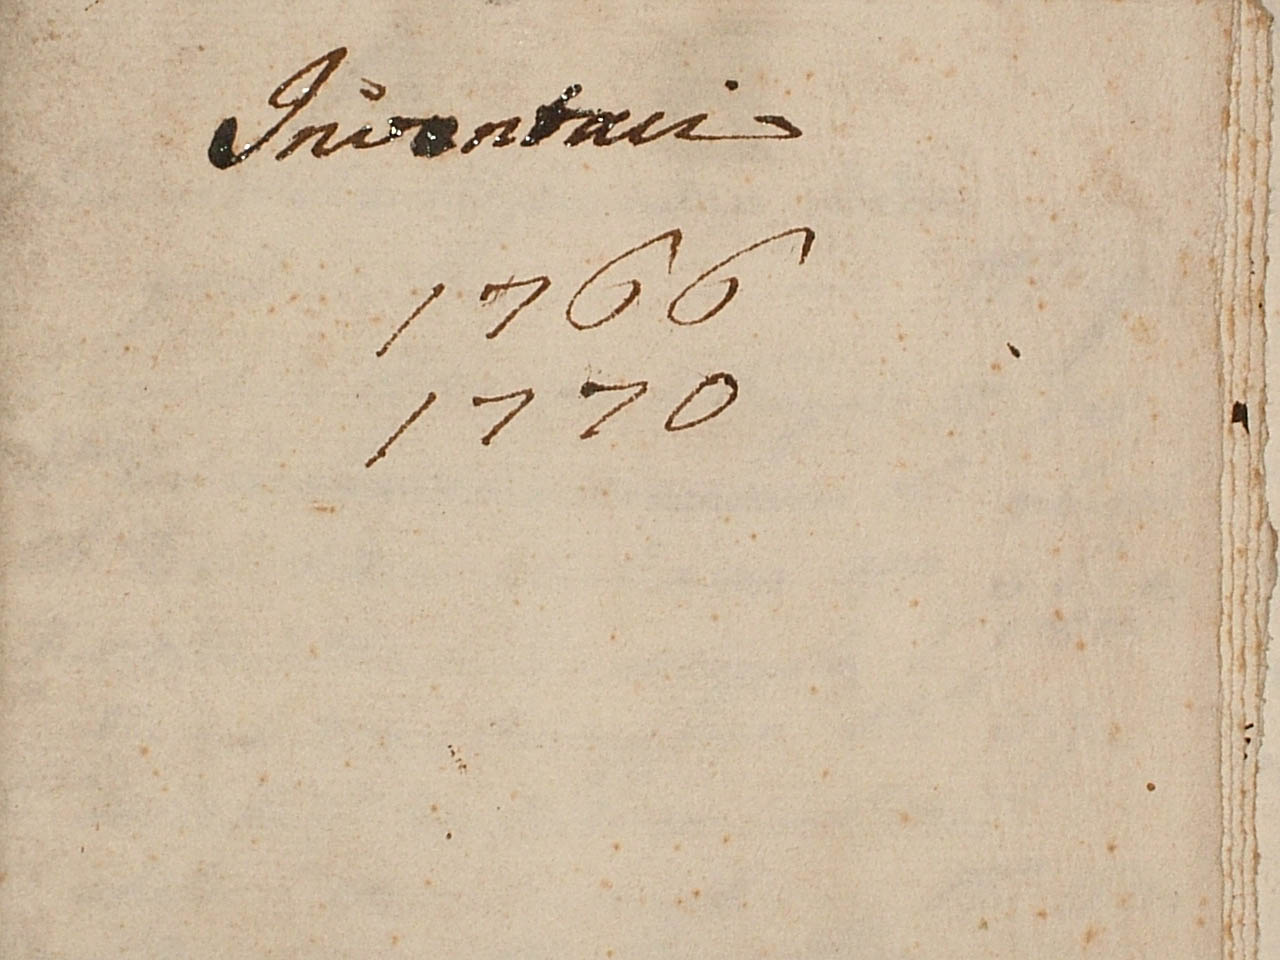 Inventari
1766
1770